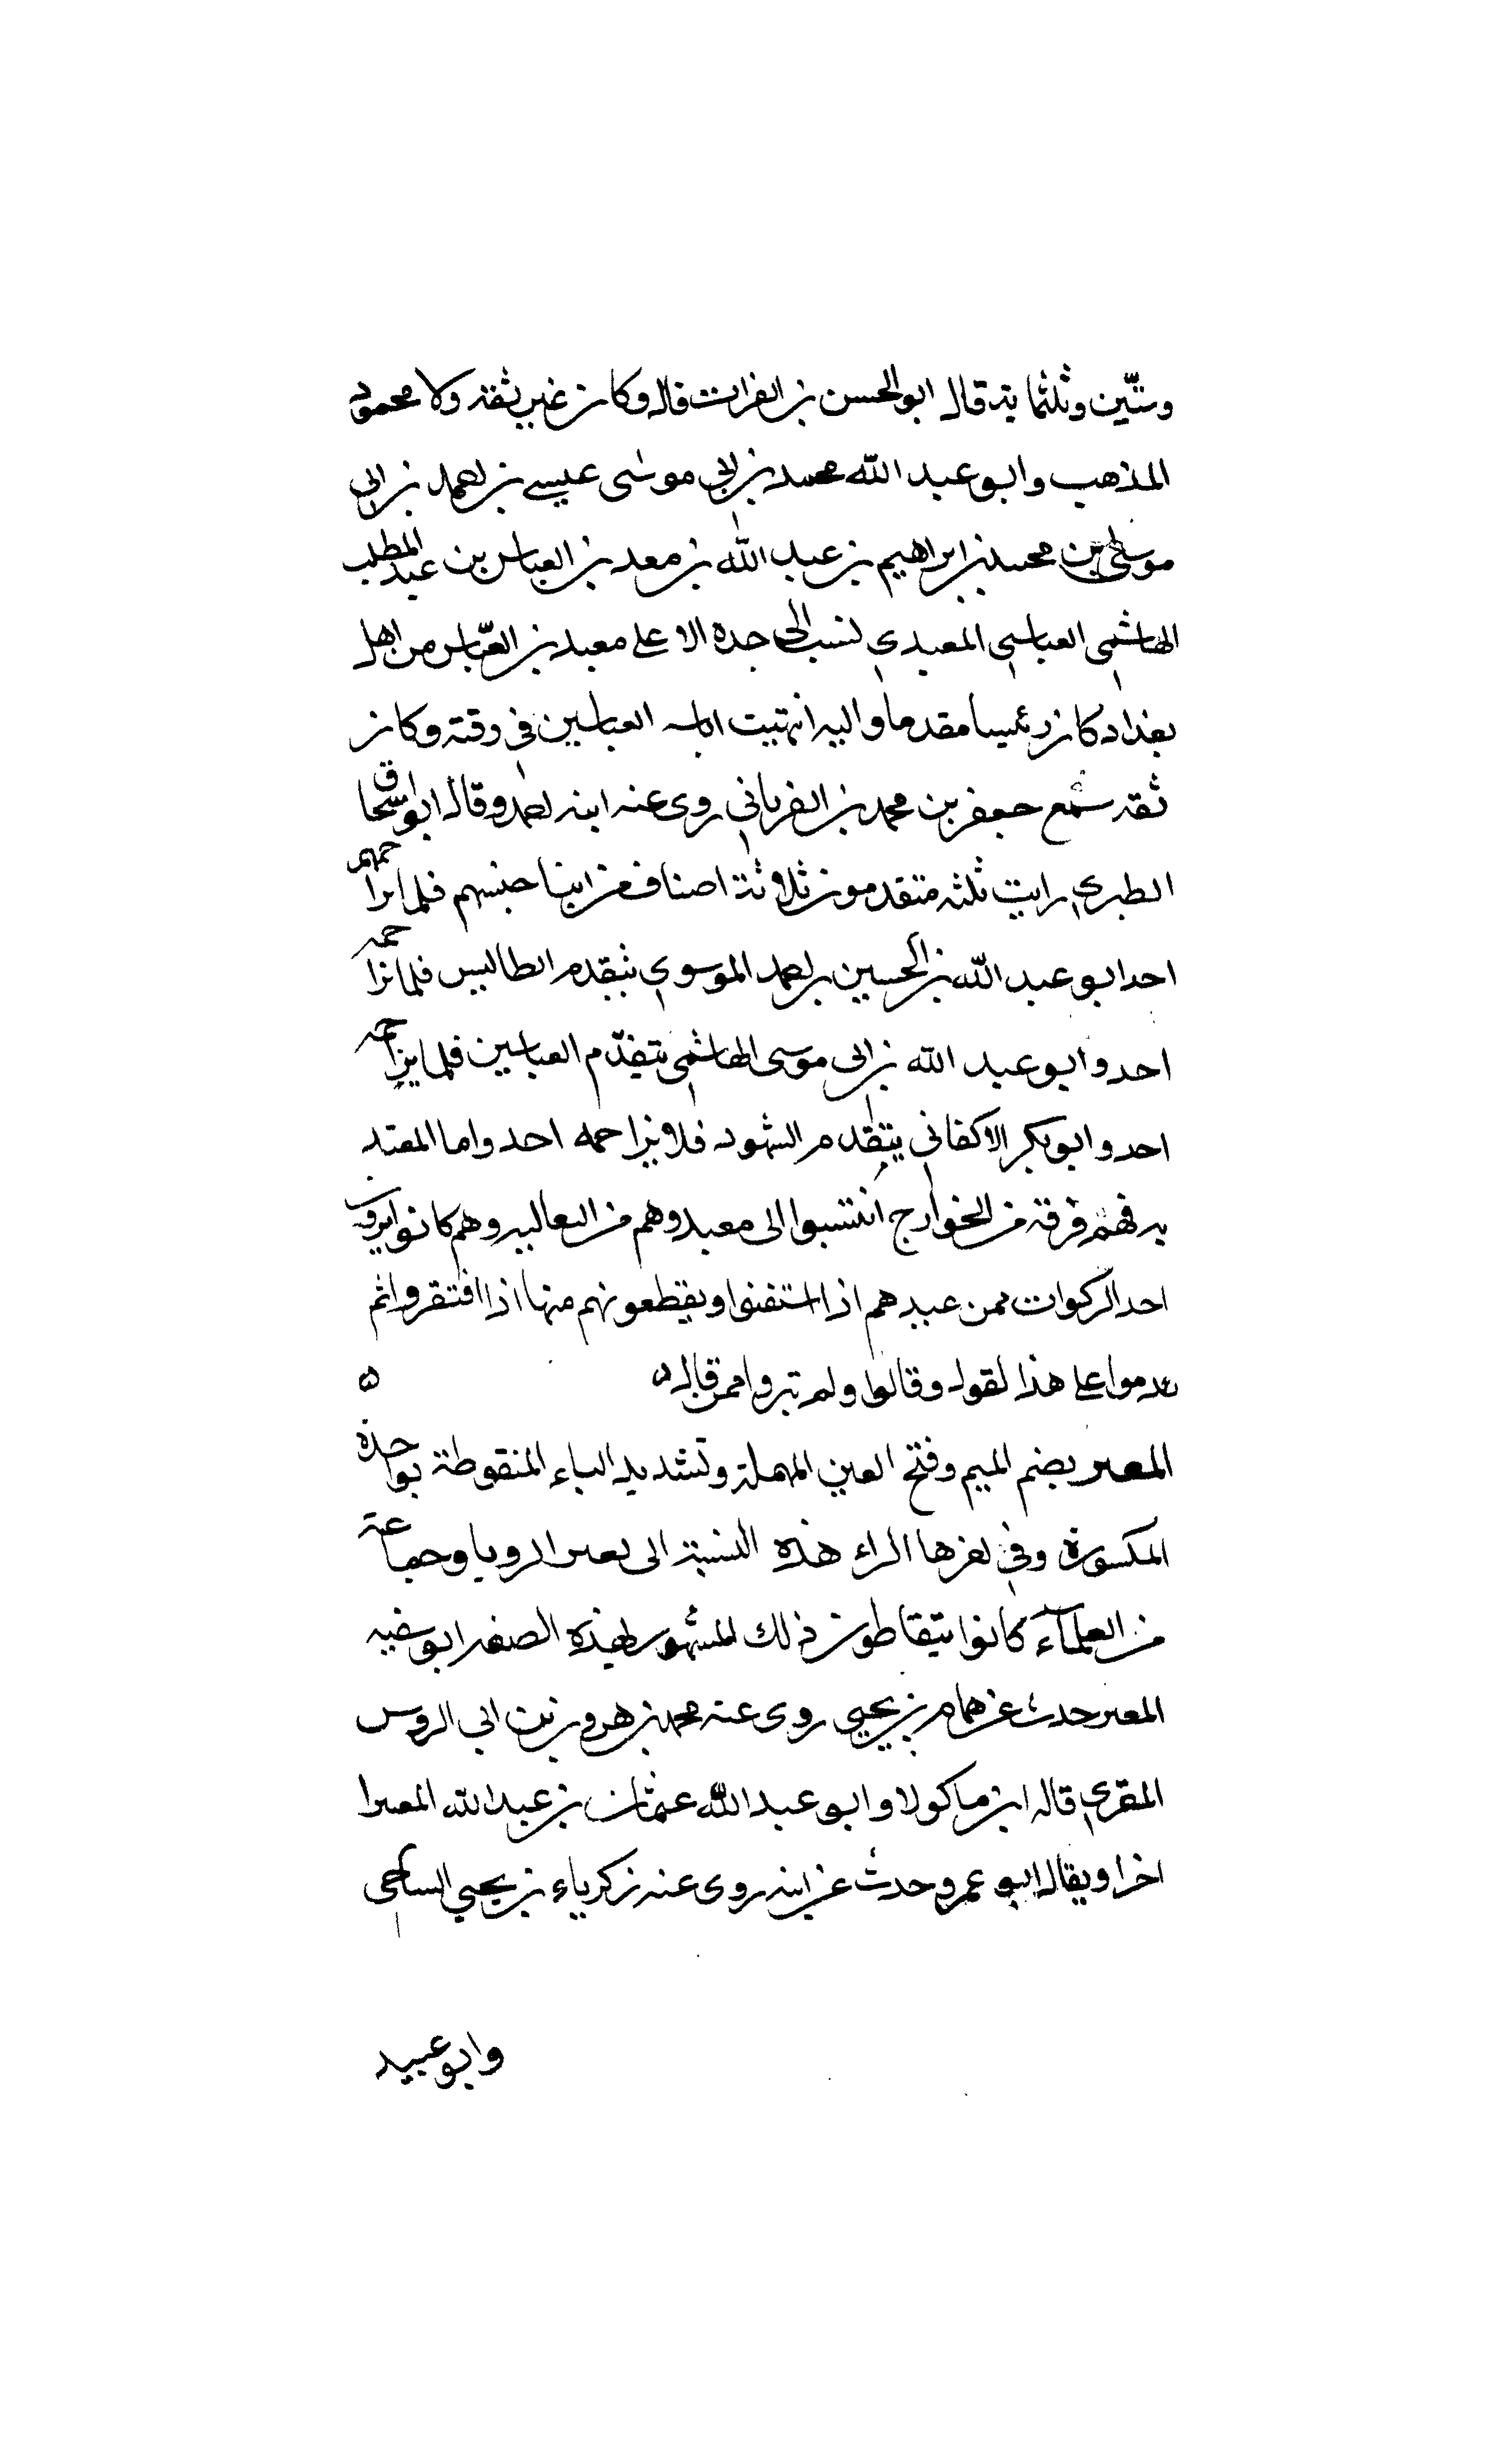 وستّين وثلثماية قال ابو الحسن بن الفرات قال وكان غير ثقة ولا محمود
المذهب وابو عبد الله محمد بن ابي موسى عيسى بن احمد بن ابي
موسى بن محمد بن ابراهيم بن عبد الله بن معبد بن العباس بن عبد المطلب
الهاشمي العباسي المعبدي نسب الى جده الاعلى معبد بن العبّاس من اهل
بغداد كان رئيسا مقدما واليه انتهيت العباسين في وقته وكان
ثقة سمع جعفر بن محمد بن الفريابي روى عنه ابنه احمد وقال ابو اسحاق
الطبري رايت ثلثه متقدمون ثلاثة اصناف من ابنا جنسهم فلا يزاحمهم
احد ابو عبد الله بن الحسين بن احمد الموسوي يتقدم الطالبيين فلا يزاحمه
احد وابو عبد الله بن ابي موسى الهاشمي يتقدّم العباسين فلا يزاحمه
احد وابو بكر الاكفاني يتقدم الشهود فلا يزاحمه احد واما المعبد
يه فهم فرقة من الخوارج انتسبوا الى معبد وهم من الثعالبه وهم كانوا يرون
اخذ الزكوات من عبيدهم اذا استغنوا ويقطعونهم منها اذا افتقروا ثم
ندموا على هذا لقول وقالوا ولم تبروا ممن قال به ه
المعبر بضم الميم وفتح العين المهملة وتشديد الباء المنقوطة بواحدة
المكسورة وفي اخرها الراء هذه النسبة الى تعبير الرويا وجماعة
من العلماء كانوا يتعاطون ذلك المشهور بهذه الصفه ابو
المعبر حدث عن همام بن يحيى روى عنه محمد بن هرون بن ابي الروس
المقري قاله ابن ماكولا وابو عبد الله عثمان بن عبد الله المعبر
اخر ويقال ابو عمرو حدث عن ابيه روى عنه زكرياء بن يحيى الساجي
وابو عبيد